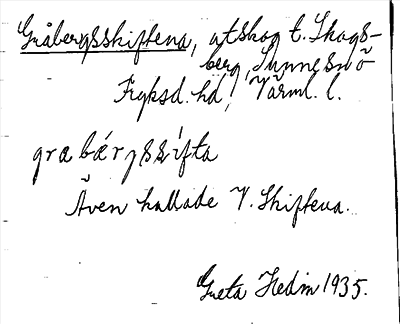 Gråbergsskiftena, utskog t. Skogs-
berg, Sunne sn
Fryksd. hd, Värml. l.
græbárgssifta
Även kallade V. Skiftena.
Greta Hedin 1935.